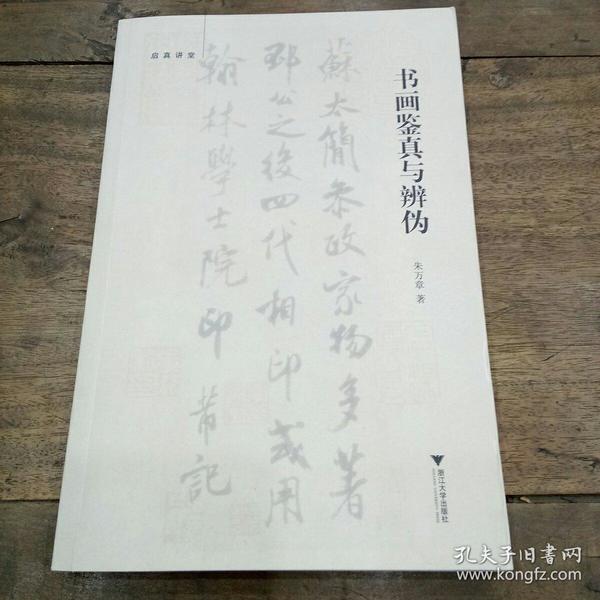 启真讲堂
书画鉴真与辨伪
朱万章 著
蘇太簡叅政家物多著
邳公之後四代相印或用
翰林學士院印 芾記
浙江大学出版社
孔夫子旧书网
www.kongfz.com